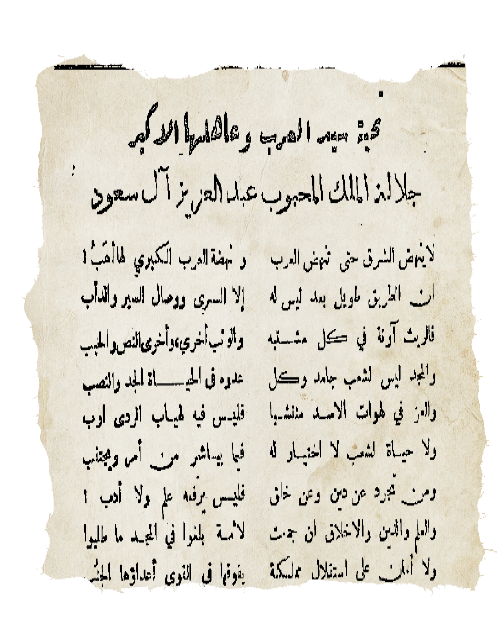 تحية سيد العرب وعاهلها الاكبر
جلالة الملك المحبوب عبد العزيز آل سعود
لا ينهض الشرق حتى تنهض العرب و نهضة العرب الكبيري لها أهب !
ان الطريق طويل بعد ليس له إلا السرى ووصال السير والدأب
فالريث آونة في كل مشتبه والوثب أخرى، وأخرى النص والخبب
والمجد ليس لشعب جامد وكل عدوه في الحياة الجد والنصب
والعز في لهوات الاسد فليس فيه لهياب الردى ارب
ولا حياة لشعب لا اختيار له فيما يباشر من أمر ويجتنب
ومن تجرد عن دين وعن خلق فليس يرفعه علم ولا أدب !
والعلم والدين والاخلاق ان جمعت لأمة بلغوا في المجد ما طلبوا
ولا على استقلال مملكة يفوقها في القوى أعداؤها